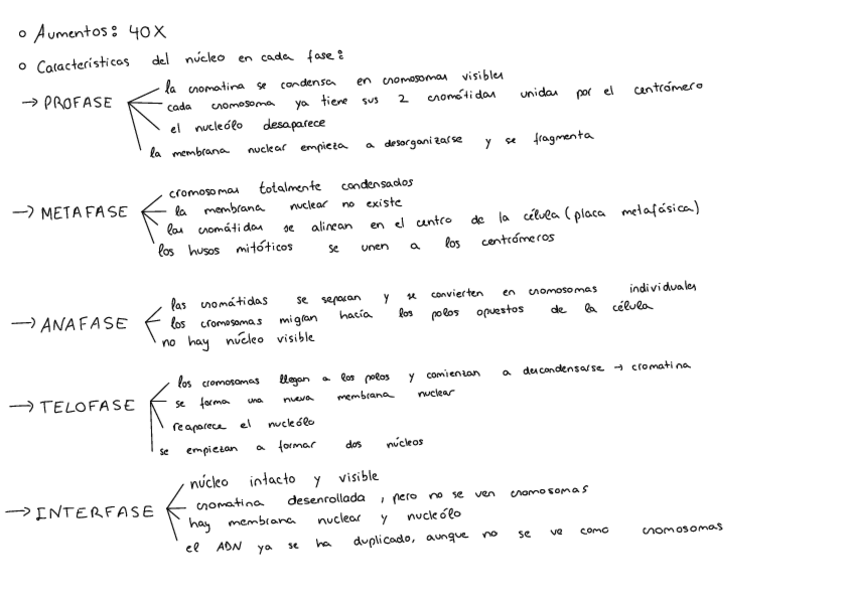 o Aumentos: 40X
o Características del núcleo en cada fase:
→ PROFASE
la cromatina se condensa en cromosomas visibles
cada cromosoma ya tiene sus 2 cromátidas unidas por el centrómero
el nucleólo desaparece
la membrana nuclear empieza a desorganizarse y se fragmenta
→ METAFASE
cromosomas totalmente condensados
la membrana nuclear no existe
las cromátidas se alinean en el centro de la célula (placa metafásica)
los husos mitóticos se unen a los centrómeros
→ ANAFASE
las cromátidas se separan y se convierten en cromosomas individuales
los cromosomas migran hacía los polos opuestos de la célula
no hay núcleo visible
→ TELOFASE
los cromosomas llegan a los polos y comienzan a descondensarse → cromatina
se forma una nueva membrana nuclear
reaparece el nucleólo
se empiezan a formar dos núcleos
→ INTERFASE
núcleo intacto y visible
cromatina desenrollada, pero no se ven cromosomas
hay membrana nuclear y nucleólo
el ADN ya se ha duplicado, aunque no se ve como cromosomas